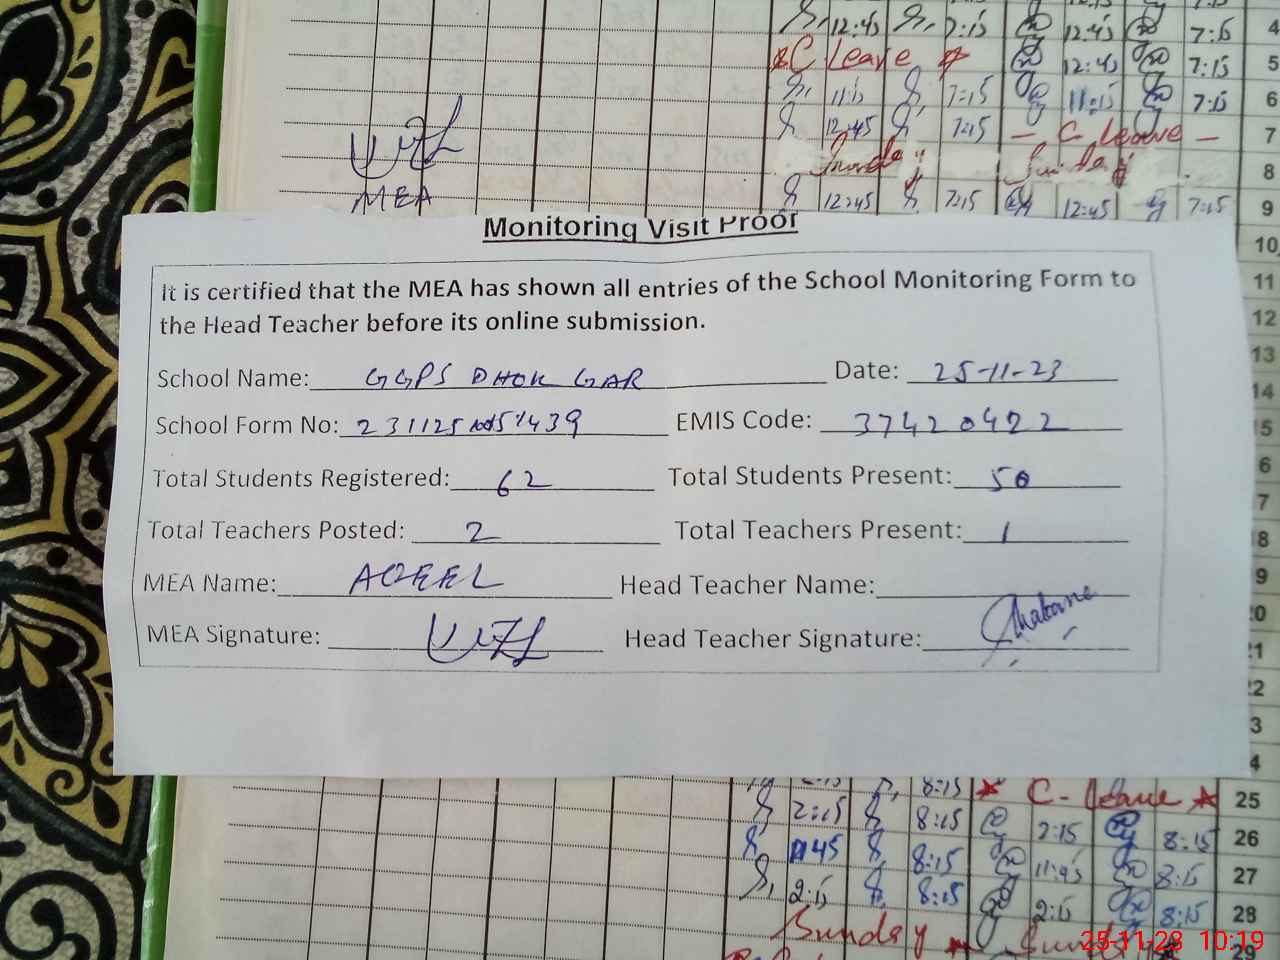 12:45 7:15 12:45 7:15 4
C Leave 12:45 7:15 5
11:15 7:15 11:15 7:15 6
12:45 7:15 — C Leave — 7
Sunday Sunday 8
MEA
12:45 7:15 12:45 7:15 9
Monitoring Visit Proof
10
It is certified that the MEA has shown all entries of the School Monitoring Form to
11
the Head Teacher before its online submission.
12
13
School Name: GGPS DHOK GAR Date: 25-11-23
14
School Form No: EMIS Code: 37420422
Total Students Registered: 62 Total Students Present: 50
Total Teachers Posted: 2 Total Teachers Present: 1
MEA Name: AQEEL Head Teacher Name:
MEA Signature: Head Teacher Signature:
8:15 C-Leave 25
2:15 8:15 2:15 8:15 26
45 8:15 11:45 8:15 27
2:15 8:15 2:15 8:15 28
Sunday 29
25-11-23 10:19